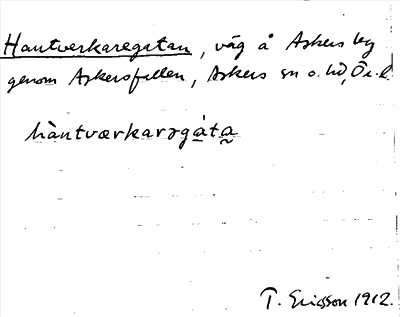 Hantverkaregatan, väg å Askers by
genom Askersfallen, Askers sn o. hd, Ö. l.
hàntværkarɘgáta
T. Ericsson 1912.